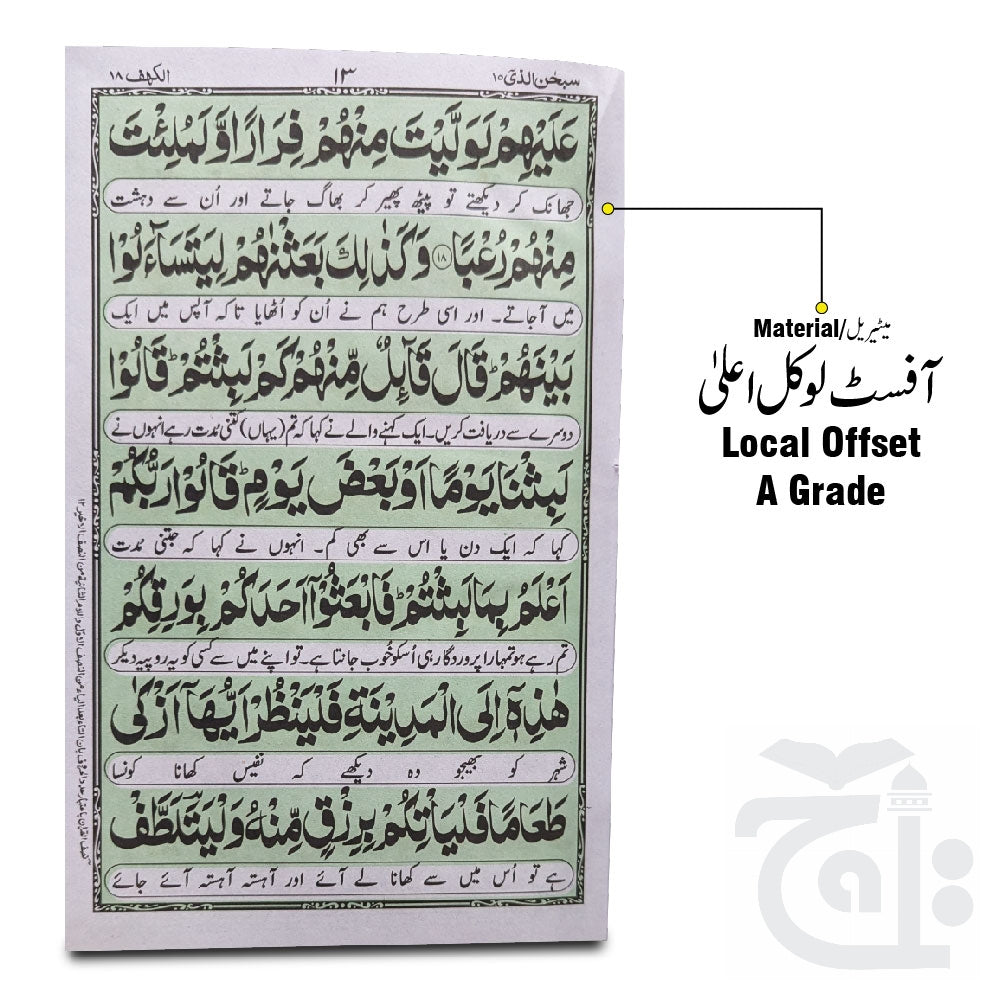 سبحٰن الذیٓ ۱۵
۱۳
الکہف ۱۸
عَلَيْهِمْ لَوَلَّيْتَ مِنْهُمْ فِرَارًا وَّلَمُلِئْتَ
جھانک کر دیکھتے تو پیٹھ پھیر کر بھاگ جاتے اور اُن سے دہشت
مِنْهُمْ رُعْبًا ۱۸ وَكَذٰلِكَ بَعَثْنٰهُمْ لِيَتَسَآءَلُوْا
میں آجاتے۔ اور اسی طرح ہم نے اُن کو اُٹھایا تاکہ آپس میں ایک
بَيْنَهُمْ ؕ قَالَ قَآئِلٌ مِّنْهُمْ كَمْ لَبِثْتُمْ ؕ قَالُوْا
دوسرے سے دریافت کریں۔ ایک کہنے والے نے کہا کہ تم (یہاں) کتنی مُدت رہے انہوں نے
لَبِثْنَا يَوْمًا اَوْ بَعْضَ يَوْمٍ ؕ قَالُوْا رَبُّكُمْ
کہا کہ ایک دن یا اس سے بھی کم۔ انہوں نے کہا کہ جتنی مُدت
اَعْلَمُ بِمَا لَبِثْتُمْ ؕ فَابْعَثُوْٓا اَحَدَكُمْ بِوَرِقِكُمْ
تم رہے ہو تمہارا پروردگار ہی اُسکو خُوب جانتا ہے۔ تو اپنے میں سے کسی کو یہ روپیہ دیکر
هٰذِهٖٓ اِلَى الْمَدِيْنَةِ فَلْيَنْظُرْ اَيُّهَآ اَزْكٰى
شہر کو بھیجو وہ دیکھے کہ نفیس کھانا کونسا
طَعَامًا فَلْيَاْتِكُمْ بِرِزْقٍ مِّنْهُ وَلْيَتَلَطَّفْ
ہے تو اُس میں سے کھانا لے آئے اور آہستہ آہستہ آئے جائے
Material/میٹیریل
آفسٹ لوکل اعلیٰ
Local Offset
A Grade